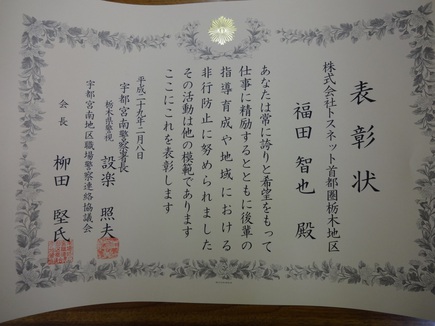 表彰状
株式会社トスネット首都圏栃木地区
福田智也 殿
あなたは常に誇りと希望をもって
仕事に精励するとともに後輩の
指導育成や地域における
非行防止に努められました
その活動は他の模範であります
ここにこれを表彰します
平成二十九年二月八日
宇都宮南警察署長
栃木県警視 設楽照夫
宇都宮南地区職場警察連絡協議会
会長 柳田堅氏